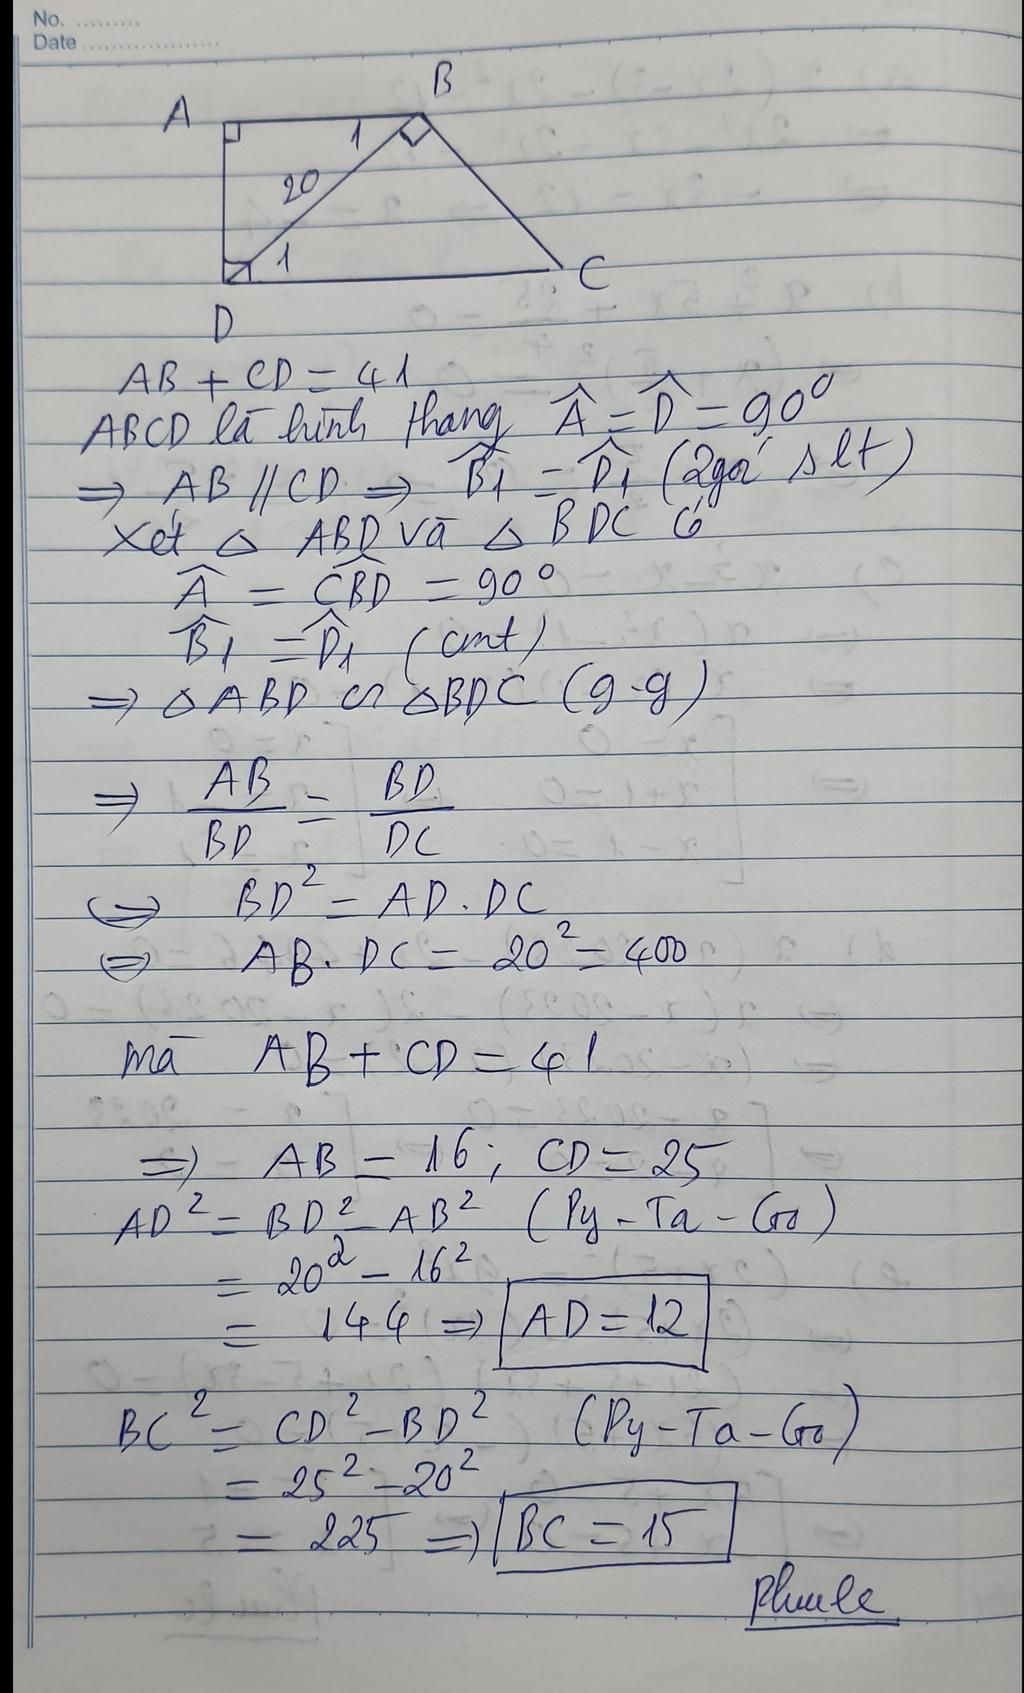 No. .........
Date ....................
A B
1
20
1
D C
AB + CD = 41
ABCD là hình thang Â = D̂ = 90°
⇒ AB // CD ⇒ B̂1 = D̂1 (2 góc slt)
Xét △ ABD và △ BDC có
Â = CB̂D = 90°
B̂1 = D̂1 (cmt)
⇒ △ABD ∽ △BDC (g-g)
⇒ AB/BD = BD/DC
⇔ BD² = AD . DC
⇔ AB . DC = 20² = 400
mà AB + CD = 41
⇒ AB = 16 ; CD = 25
AD² = BD² - AB² (Py-Ta-Go)
= 20² - 16²
= 144 ⇒ AD = 12
BC² = CD² - BD² (Py-Ta-Go)
= 25² - 20²
= 225 ⇒ BC = 15